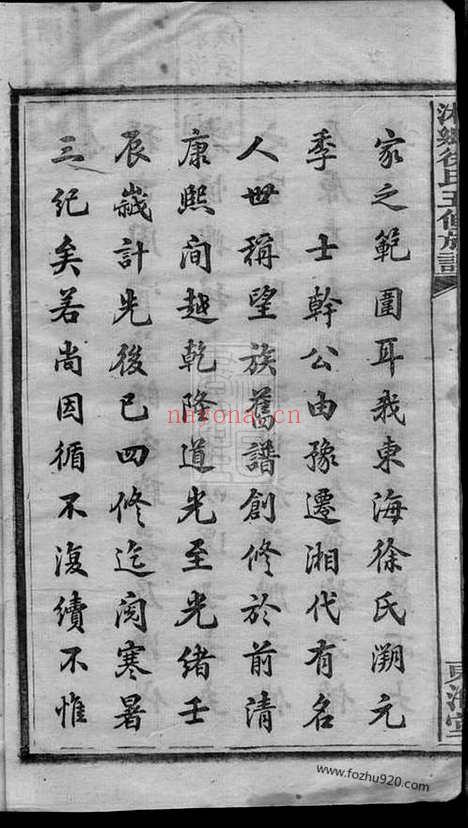 家之範圍耳我東海徐氏溯元
季　士幹公由豫遷湘代有名
人世稱望族舊譜創修於前清
康熙间越乾隆道光至光緒壬
辰嵗計先後已四修迄闵寒暑
三纪矣若尚因循不復續不惟
徐氏五修族譜
東海堂
nayona.cn
www.fozhu920.com